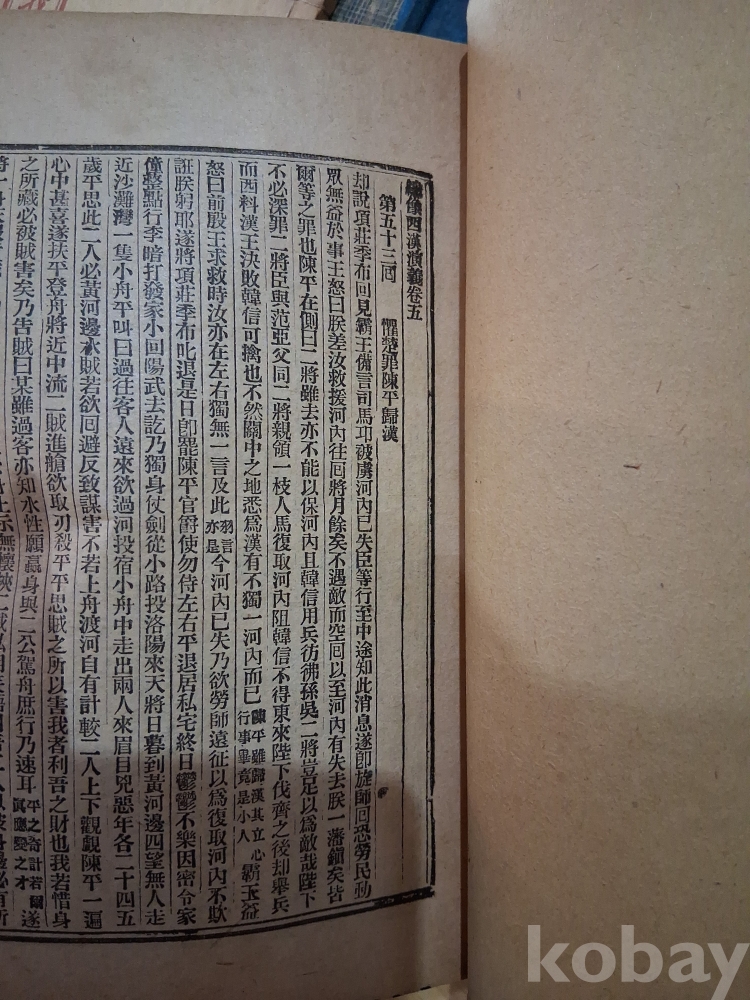 繡像西漢演義卷五
第五十三回　懼楚罪陳平歸漢
却說項莊季布回見霸王備言司馬卭被虜河內已失臣等行至中途知此消息遂卽旋師回恐勞民動
眾無益於事王怒曰朕差汝救援河內往回將月餘矣不遇敵而空回以至河內有失去朕一藩鎭矣皆
爾等之罪也陳平在側曰二將雖去亦不能以保河內且韓信用兵彷彿孫吳二將豈足以爲敵哉陛下
不必深罪二將臣與范亞父同二將親領一枝人馬復取河內阻韓信不得東來陛下伐齊之後却舉兵
而西料漢王決敗韓信可擒也不然關中之地悉爲漢有不獨一河內而已陳平雖歸漢其立心行事畢竟是小人霸王益
怒曰前殷王求救時汝亦在左右獨無一言及此羽言亦是今河內已失乃欲勞師遠征以爲復取河內不欺
誑朕躬耶遂將項莊季布叱退是日卽罷陳平官爵使勿侍左右平退居私宅終日鬱鬱不樂因密令家
僮整點行李暗打發家小回陽武去訖乃獨身仗劍從小路投洛陽來天將日暮到黃河邊四望無人走
近沙灘灣一隻小舟平叫曰過往客人遠來欲過河投宿小舟中走出兩人來眉目兇惡年各二十四五
歲平思此二人必黃河邊水賊若欲回避反致謀害不若上舟渡河自有計較二人上下觀覷陳平一遍
心中甚喜遂扶平登舟將近中流二賊進艙欲取刃殺平平思賊之所以害我者利吾之財也我若惜身
之所藏必被賊害矣乃告賊曰某雖過客亦知水性願羸身與二公駕舟庶行乃速耳平之奇計若爾眞應變之才遂
kobay